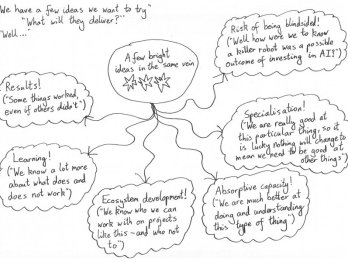 We have a few ideas we want to try"
"What will they deliver?"
"Well..."
A few bright
ideas in the same vein
Risk of being blindsided!
("Well how were we to know
a killer robot was a possible
outcome of investing in AI?")
Results!
("Some things worked,
even if others didn't")
Specialisation!
("We are really good at
this particular thing, so it
is lucky nothing will change to
mean we need to be good at
other things")
Learning!
("We know a lot more
about what does and
does not work")
Ecosystem development!
("We know who we can
work with on projects
like this - and who not
to")
Absorptive capacity!
("We are much better at
doing and understanding
this type of thing")